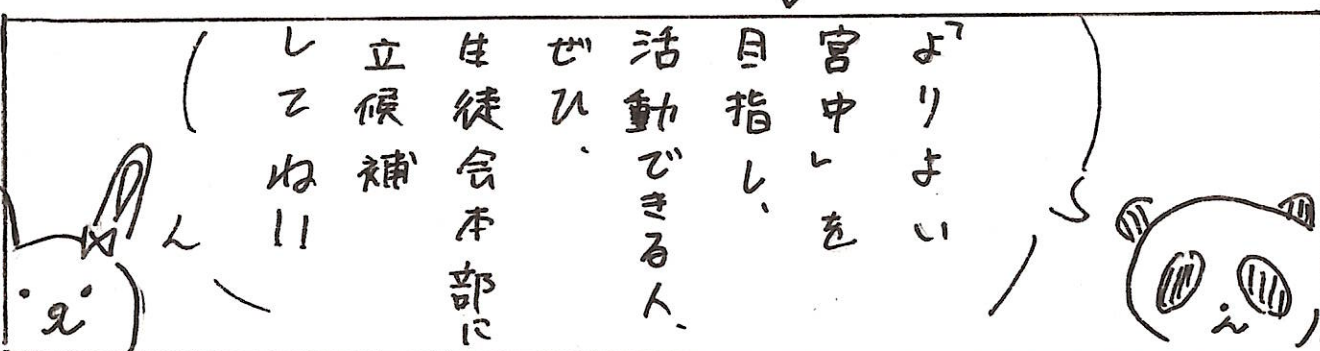 「よりよい
宮中」を
目指し、
活動できる人、
ぜひ、
生徒会本部に
立候補
してね!!